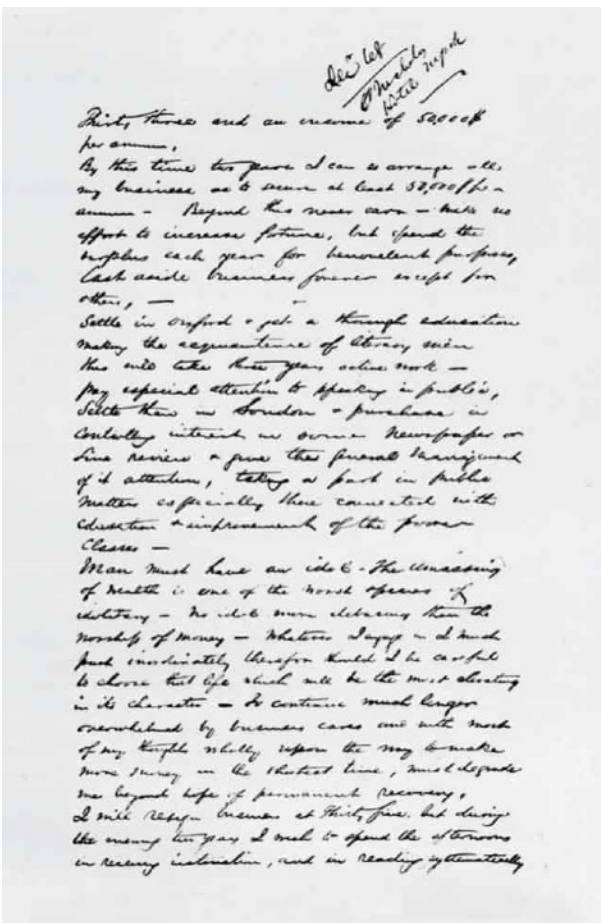 Dec '68
St Nicholas
Hotel N York
Thirty three and an income of 50,000$
per annum.
By this time two years I can so arrange all
my business as to secure at least 50,000 per
annum — Beyond this never earn — make no
effort to increase fortune, but spend the
surplus each year for benevolent purposes,
Cast aside business forever except for
others, —
Settle in Oxford & get a thorough education
making the acquaintance of literary men
this will take three years active work —
pay especial attention to speaking in public,
Settle then in London & purchase a
controlling interest in some newspaper or
live review & give the general management
of it attention, taking a part in public
matters especially those connected with
education & improvement of the poorer
classes —
Man must have an idol — The amassing
of wealth is one of the worst species of
idolatry — No idol more debasing than the
worship of money — Whatever I engage in I must
push inordinately therefor should I be careful
to choose that life which will be the most elevating
in its character — To continue much longer
overwhelmed by business cares and with most
of my thoughts wholly upon the way to make
more money in the shortest time, must degrade
me beyond hope of permanent recovery,
I will resign business at Thirty five, but during
the ensuing two years I wish to spend the afternoons
in receiving instruction, and in reading systematically